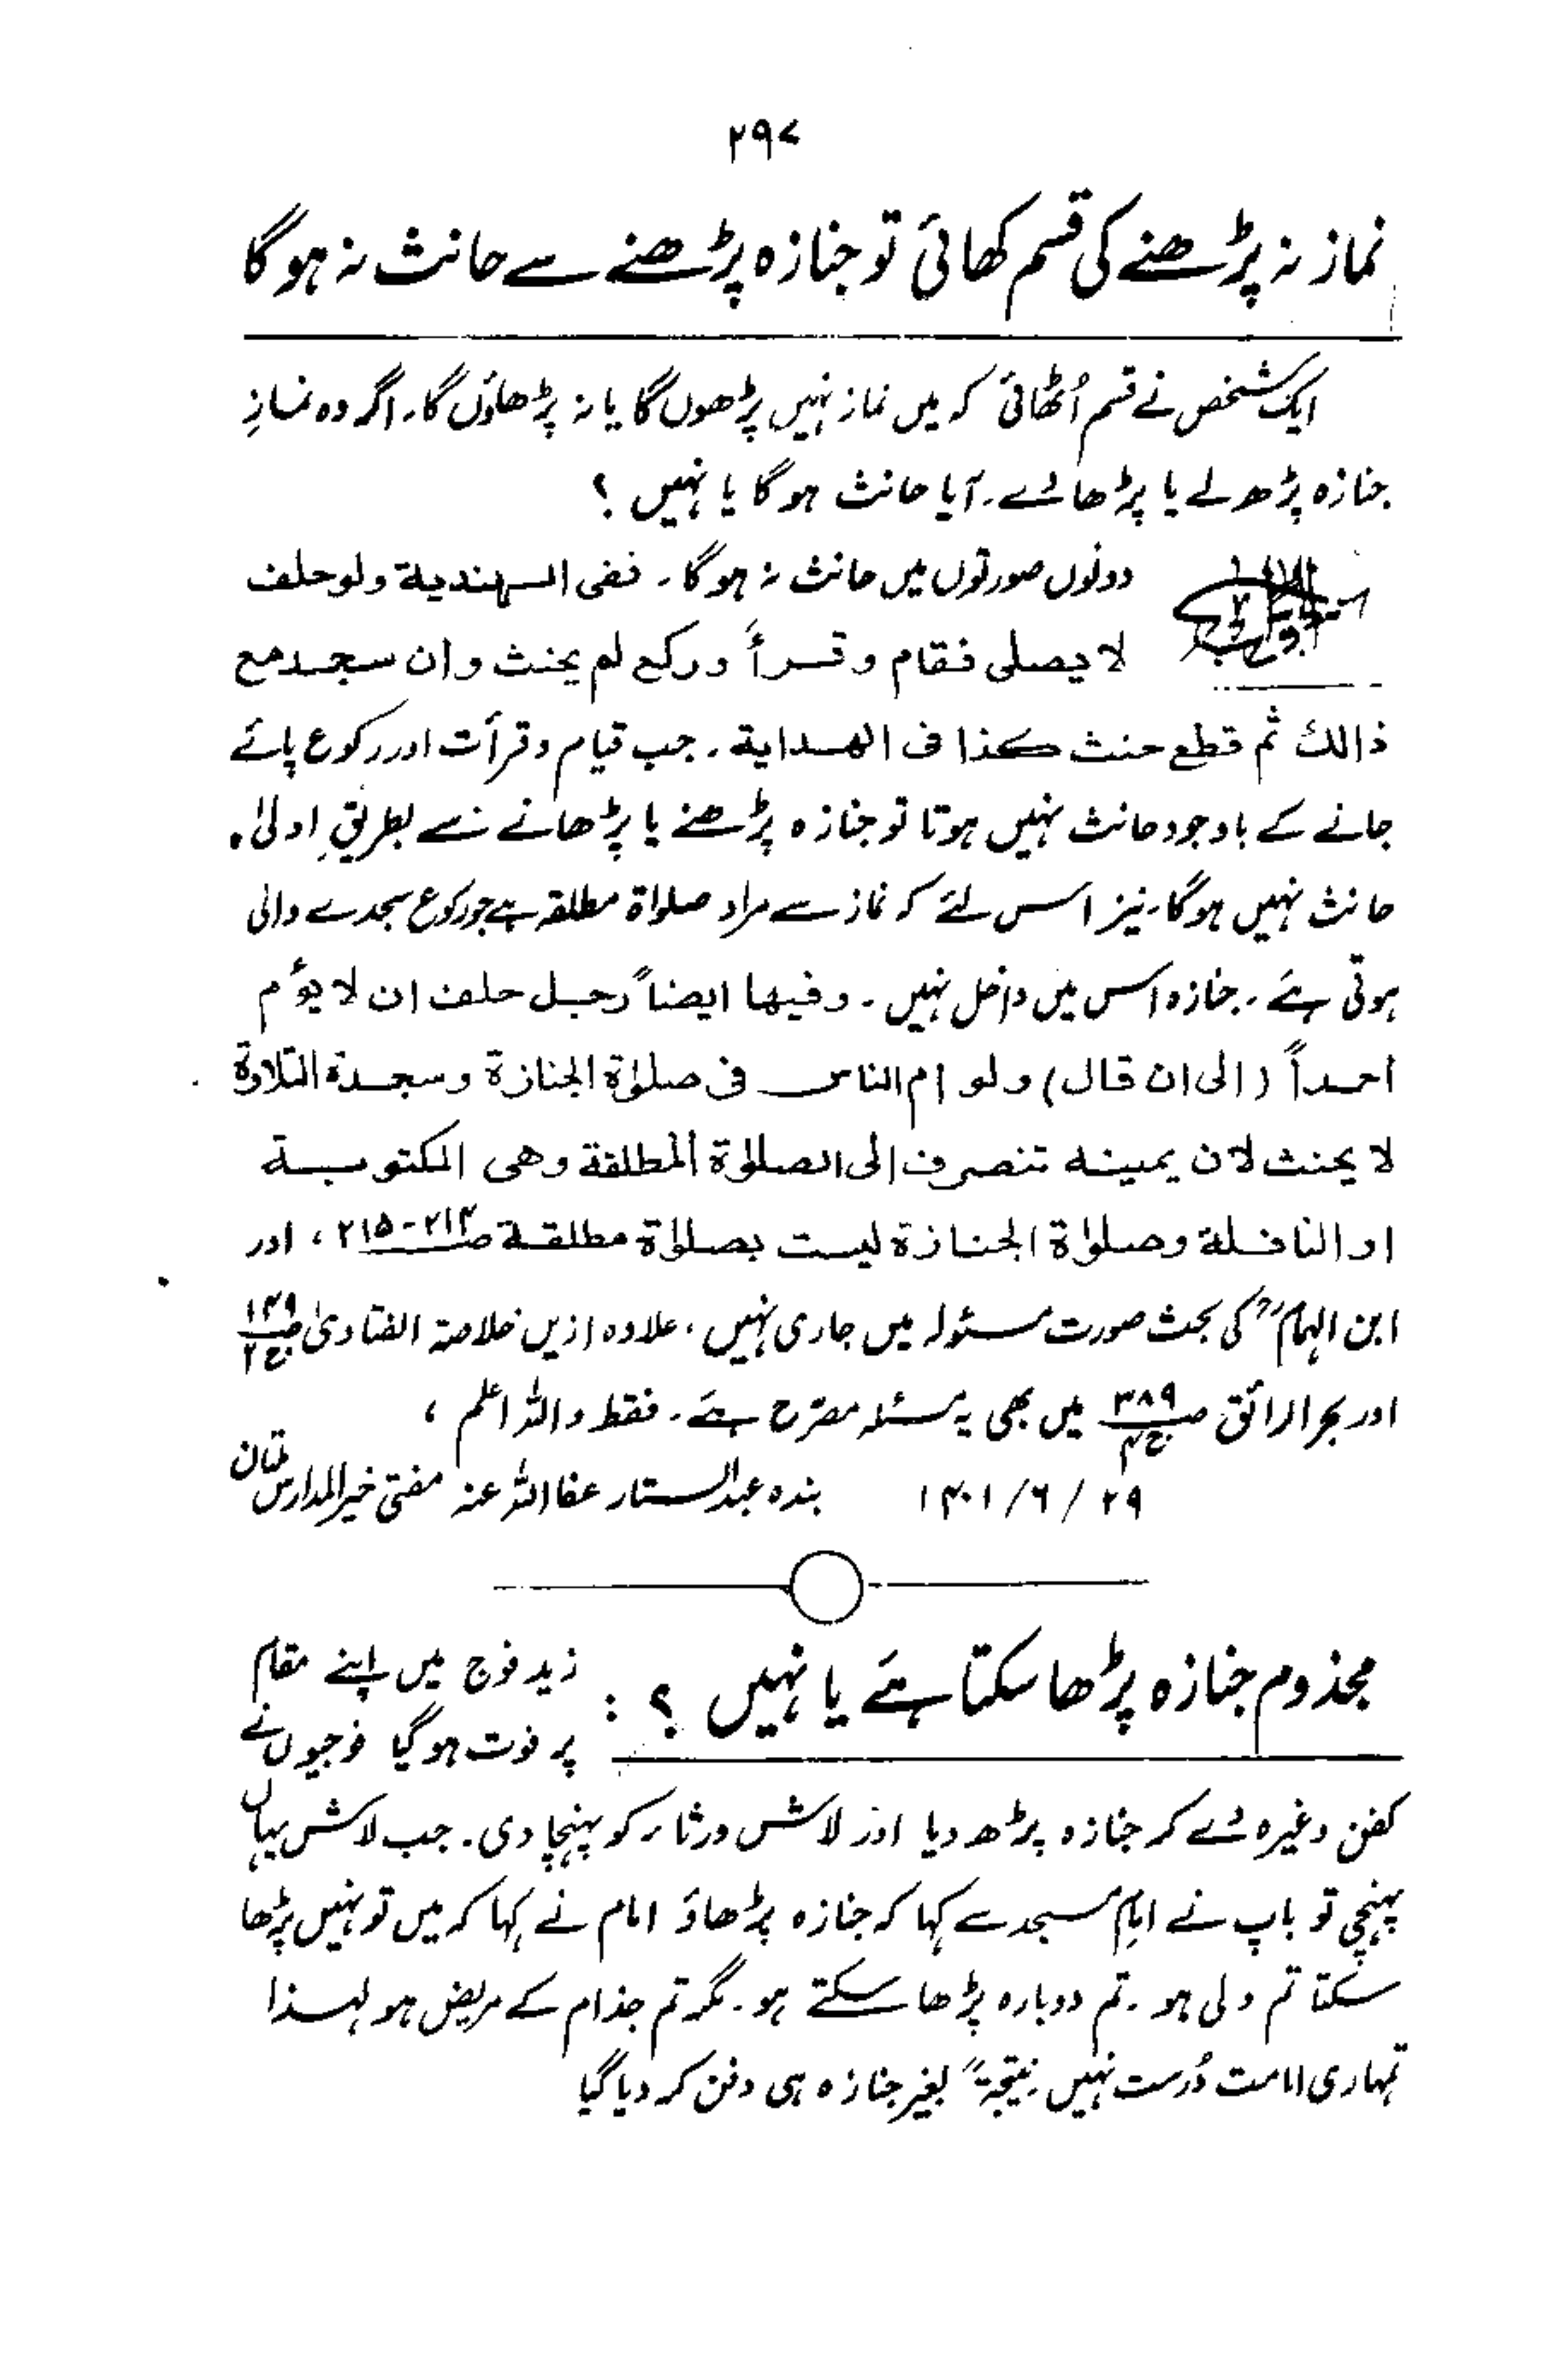 ۲۹۷
نماز نہ پڑھنے کی قسم کھائی تو جنازہ پڑھنے سے حانث نہ ہوگا
ایک شخص نے قسم اُٹھائی کہ میں نماز نہیں پڑھوں گا یا نہ پڑھاؤں گا۔ اگر وہ نمازِ
جنازہ پڑھ لے یا پڑھا لے۔ آیا حانث ہوگا یا نہیں ؟
الجواب
دونوں صورتوں میں حانث نہ ہوگا۔ ففی الھندیة ولو حلف
لا یصلی فقام وقرأ ورکع لم یحنث وان سجد مع
ذالك ثم قطع حنث کذا فی الھدایة۔ جب قیام وقرأت اور رکوع پائے
جانے کے باوجود حانث نہیں ہوتا تو جنازہ پڑھنے یا پڑھانے سے بطریقِ اولیٰ
حانث نہیں ہوگا۔ نیز اس لئے کہ نماز سے مراد صلواة مطلقہ ہے جو رکوع سجدے والی
ہوتی ہے۔ جنازہ اس میں داخل نہیں۔ وفیھا ایضاً رجل حلف ان لا یؤم
احداً (الی ان قال) ولو ام الناس فی صلوٰة الجنازة وسجدة التلاوة
لا یحنث لان یمینه تنصرف الی الصلوٰة المطلقة وھی المکتوبة
او النافلة وصلوٰة الجنازة لیست بصلوٰة مطلقة صـ۲۱۴-۲۱۵، اور
ابن الہمامؒ کی بحث صورت مسئولہ میں جاری نہیں، علاوہ ازیں خلاصة الفتاویٰ صـ۱۴۹ ج۲
اور بحر الرائق صـ۳۸۹ ج۴ میں بھی یہ مسئلہ مصرّح ہے۔ فقط واللہ اعلم ،
بندہ عبدالستار عفا اللہ عنہ مفتی خیر المدارس ملتان ۲۹ / ۶ / ۱۴۰۱
مجذوم جنازہ پڑھا سکتا ہے یا نہیں ؟ : زید فوج میں اپنے مقام
پر فوت ہوگیا فوجیوں نے
کفن وغیرہ دے کر جنازہ پڑھ دیا اور لاش ورثاء کو پہنچا دی۔ جب لاش یہاں
پہنچی تو باپ نے امام مسجد سے کہا کہ جنازہ پڑھاؤ امام نے کہا کہ میں تو نہیں پڑھا
سکتا تم ولی ہو۔ تم دوبارہ پڑھا سکتے ہو۔ مگر تم جذام کے مریض ہو لہٰذا
تمہاری امامت دُرست نہیں نتیجۃً بغیر جنازہ ہی دفن کر دیا گیا